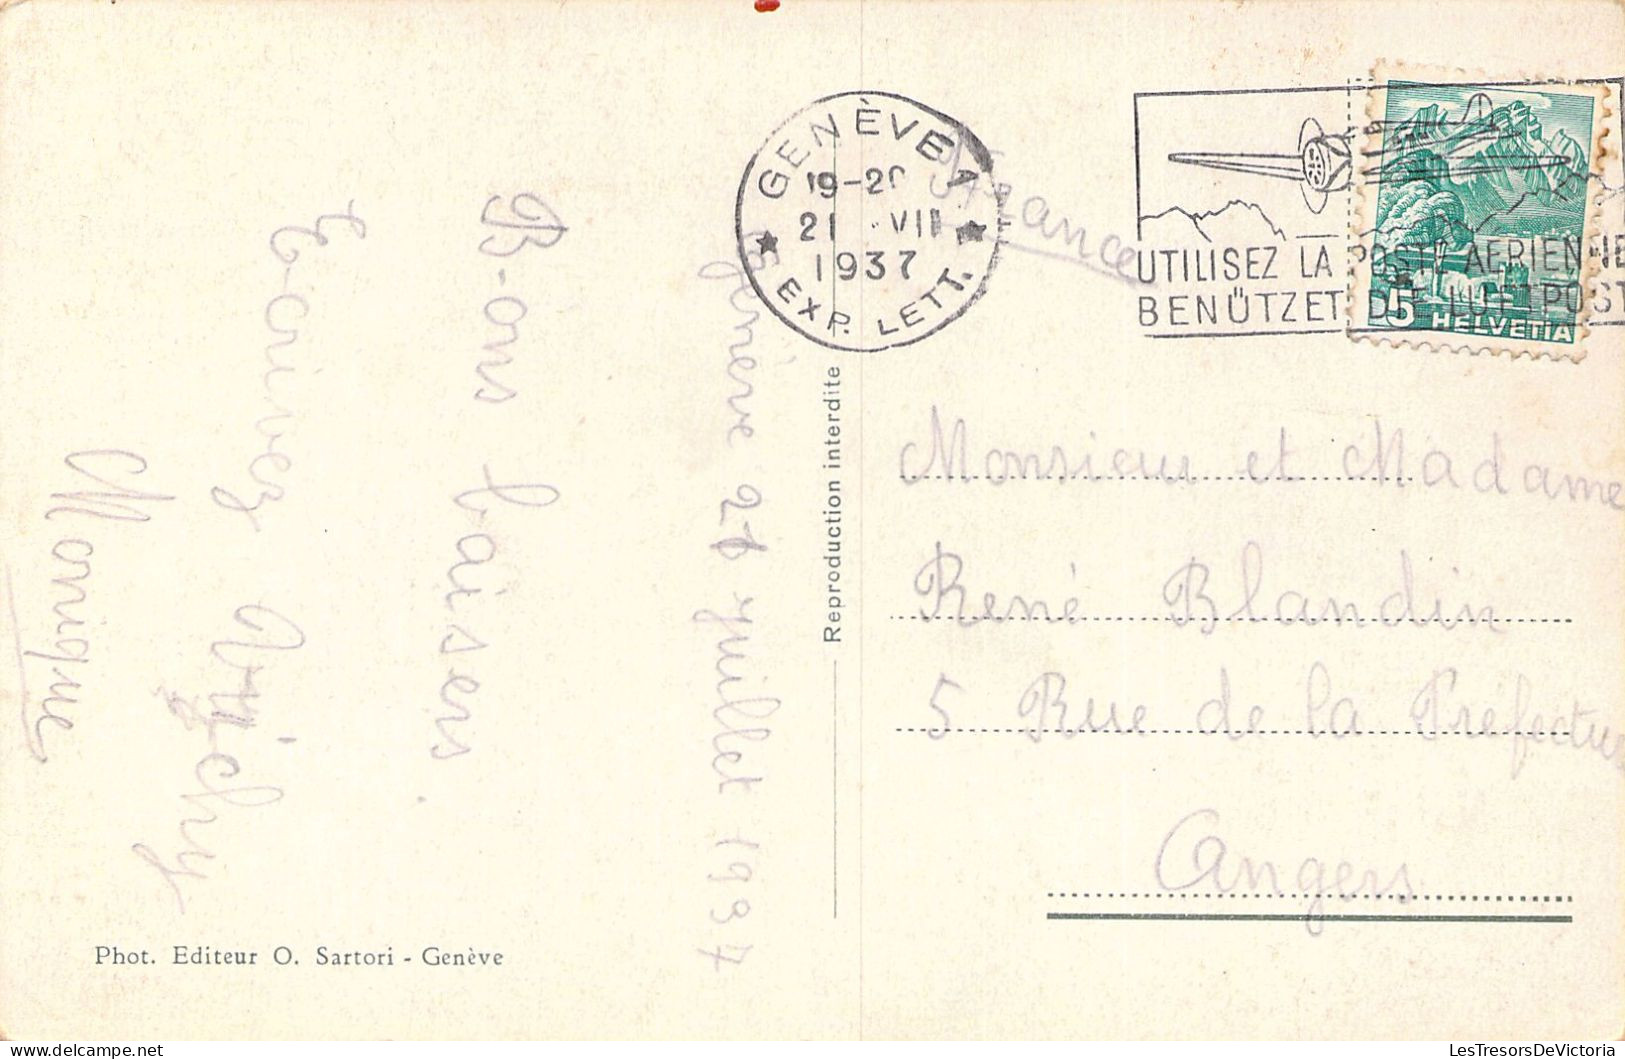 GENÈVE 1
19-20
21 . VII
1937
★ EXP. LETT. ★
France
UTILISEZ LA POSTE AERIENNE
BENÜTZET DIE LUFTPOST
5 HELVETIA
Genève 21 juillet 1937
Bons baisers
Ecrivez Vichy
Monique
Reproduction interdite
Monsieur et Madame
René Blandin
5 Rue de la Préfecture
Angers
Phot. Editeur O. Sartori - Genève
LesTresorsDeVictoria